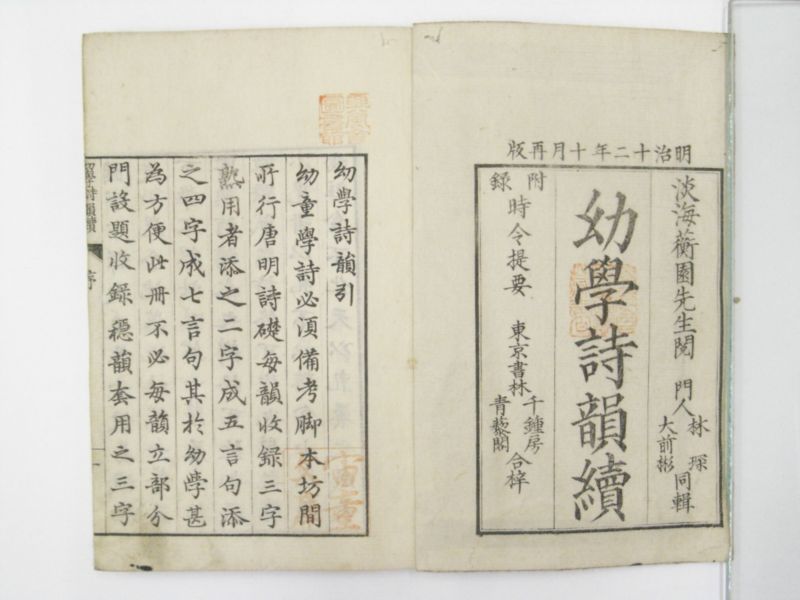 明治十二年十月再版
淡海蘅園先生閲 門人 林 琛 大前彬 同輯
幼學詩韻續
附録 時令提要 東京書林 千鍾房 青藜閣 合梓
幼學詩韻引
幼童學詩必須備考脚本坊間
所行唐明詩礎每韻收録三字
熟用者添之二字成五言句添
之四字成七言句其於幼學甚
為方便此冊不必每韻立部分
門設題收録穩韻套用之三字
序
一